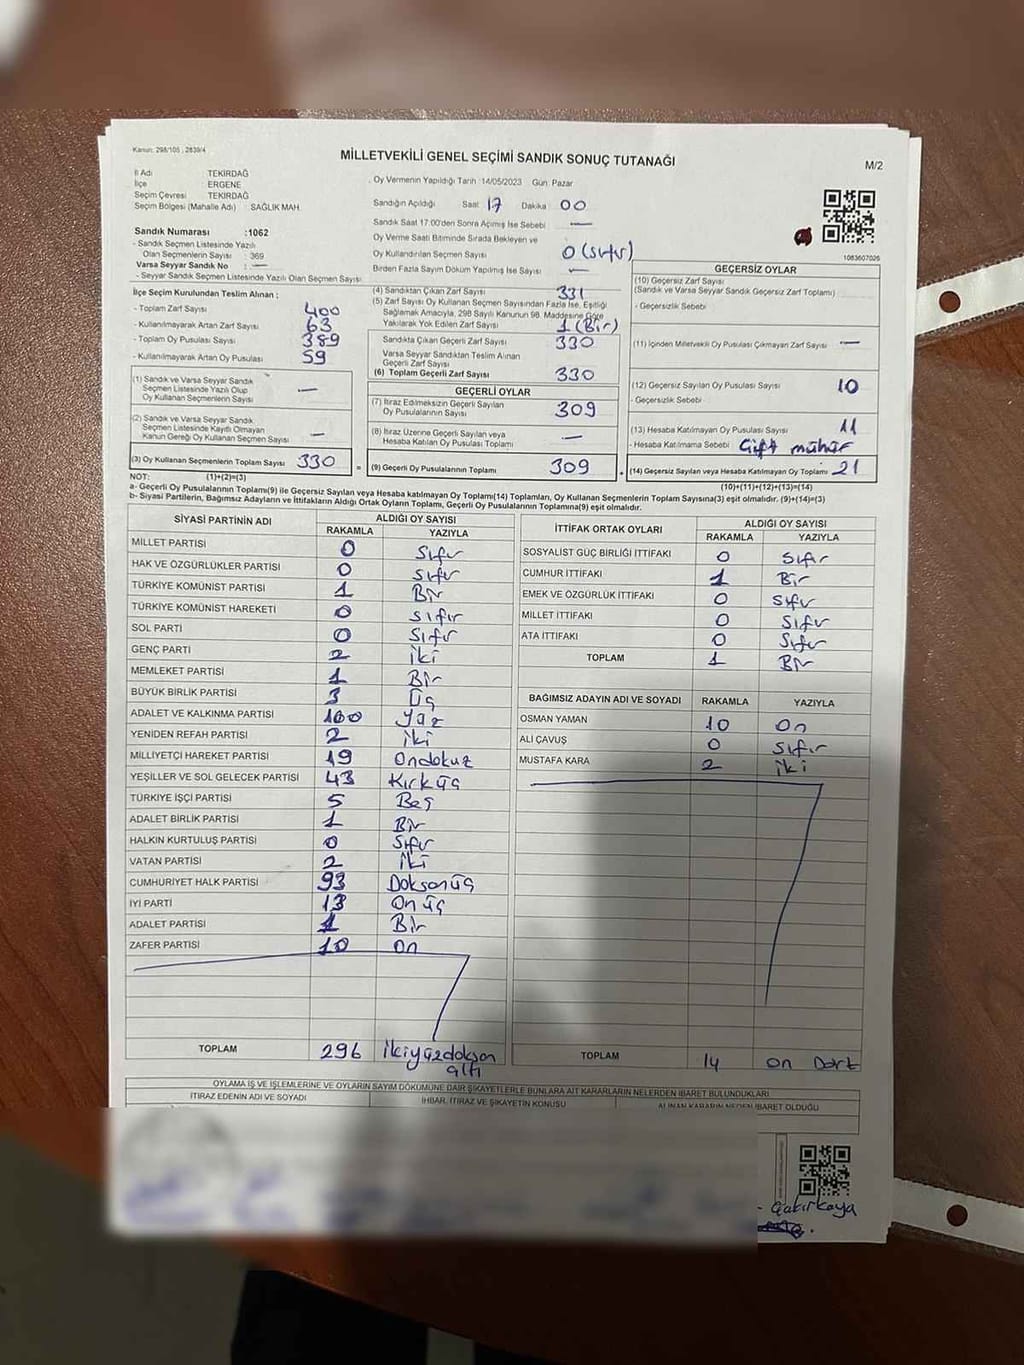 Kanun: 298/105 , 2839/4
MİLLETVEKİLİ GENEL SEÇİMİ SANDIK SONUÇ TUTANAĞI
M/2
İl Adı TEKİRDAĞ
İlçe ERGENE
Seçim Çevresi TEKİRDAĞ
Seçim Bölgesi (Mahalle Adı) : SAĞLIK MAH.
Sandık Numarası :1062
- Sandık Seçmen Listesinde Yazılı
Olan Seçmenlerin Sayısı : 369
Varsa Seyyar Sandık No : —
- Seyyar Sandık Seçmen Listesinde Yazılı Olan Seçmen Sayısı
Oy Vermenin Yapıldığı Tarih 14/05/2023 Gün: Pazar
Sandığın Açıldığı Saat 17 Dakika 00
Sandık Saat 17:00'den Sonra Açılmış İse Sebebi —
Oy Verme Saati Bitiminde Sırada Bekleyen ve
Oy Kullandırılan Seçmen Sayısı 0 (sıfır)
Birden Fazla Sayım Döküm Yapılmış İse Sayısı —
1083607026
İlçe Seçim Kurulundan Teslim Alınan :
- Toplam Zarf Sayısı 400
- Kullanılmayarak Artan Zarf Sayısı 63
- Toplam Oy Pusulası Sayısı 389
- Kullanılmayarak Artan Oy Pusulası 59
(1) Sandık ve Varsa Seyyar Sandık
Seçmen Listesinde Yazılı Olup
Oy Kullanan Seçmenlerin Sayısı —
(2) Sandık ve Varsa Seyyar Sandık
Seçmen Listesinde Kayıtlı Olmayan
Kanun Gereği Oy Kullanan Seçmen Sayısı —
(3) Oy Kullanan Seçmenlerin Toplam Sayısı 330
(1)+(2)=(3)
(4) Sandıktan Çıkan Zarf Sayısı 331
(5) Zarf Sayısı Oy Kullanan Seçmen Sayısından Fazla İse, Eşitliği
Sağlamak Amacıyla, 298 Sayılı Kanunun 98. Maddesine Göre
Yakılarak Yok Edilen Zarf Sayısı 1 (Bir)
Sandıkta Çıkan Geçerli Zarf Sayısı 330
Varsa Seyyar Sandıktan Teslim Alınan
Geçerli Zarf Sayısı
(6) Toplam Geçerli Zarf Sayısı 330
GEÇERLİ OYLAR
(7) İtiraz Edilmeksizin Geçerli Sayılan
Oy Pusulalarının Sayısı 309
(8) İtiraz Üzerine Geçerli Sayılan veya
Hesaba Katılan Oy Pusulası Toplamı —
= (9) Geçerli Oy Pusulalarının Toplamı 309
GEÇERSİZ OYLAR
(10) Geçersiz Zarf Sayısı
(Sandık ve Varsa Seyyar Sandık Geçersiz Zarf Toplamı)
- Geçersizlik Sebebi
(11) İçinden Milletvekili Oy Pusulası Çıkmayan Zarf Sayısı —
(12) Geçersiz Sayılan Oy Pusulası Sayısı 10
- Geçersizlik Sebebi
(13) Hesaba Katılmayan Oy Pusulası Sayısı 11
- Hesaba Katılmama Sebebi Çift mühür
(14) Geçersiz Sayılan veya Hesaba Katılmayan Oy Toplamı 21
(10)+(11)+(12)+(13)=(14)
NOT:
a- Geçerli Oy Pusulaları Toplamı(9) ile Geçersiz Sayılan veya Hesaba katılmayan Oy Toplamı(14) Toplamları, Oy Kullanan Seçmenlerin Toplam Sayısına(3) eşit olmalıdır. (9)+(14)=(3)
b- Siyasi Partilerin, Bağımsız Adayların ve İttifakların Aldığı Ortak Oyların Toplamı, Geçerli Oy Pusulalarının Toplamına(9) eşit olmalıdır.
SİYASİ PARTİNİN ADI ALDIĞI OY SAYISI
RAKAMLA YAZIYLA
MİLLET PARTİSİ 0 Sıfır
HAK VE ÖZGÜRLÜKLER PARTİSİ 0 Sıfır
TÜRKİYE KOMÜNİST PARTİSİ 1 Bir
TÜRKİYE KOMÜNİST HAREKETİ 0 Sıfır
SOL PARTİ 0 Sıfır
GENÇ PARTİ 2 iki
MEMLEKET PARTİSİ 1 Bir
BÜYÜK BİRLİK PARTİSİ 3 Üç
ADALET VE KALKINMA PARTİSİ 100 Yüz
YENİDEN REFAH PARTİSİ 2 iki
MİLLİYETÇİ HAREKET PARTİSİ 19 Ondokuz
YEŞİLLER VE SOL GELECEK PARTİSİ 43 Kırküç
TÜRKİYE İŞÇİ PARTİSİ 5 Beş
ADALET BİRLİK PARTİSİ 1 Bir
HALKIN KURTULUŞ PARTİSİ 0 Sıfır
VATAN PARTİSİ 2 iki
CUMHURİYET HALK PARTİSİ 93 Doksanüç
İYİ PARTİ 13 On üç
ADALET PARTİSİ 1 Bir
ZAFER PARTİSİ 10 On
TOPLAM 296 ikiyüzdoksan
altı
İTTİFAK ORTAK OYLARI ALDIĞI OY SAYISI
RAKAMLA YAZIYLA
SOSYALİST GÜÇ BİRLİĞİ İTTİFAKI 0 Sıfır
CUMHUR İTTİFAKI 1 Bir
EMEK VE ÖZGÜRLÜK İTTİFAKI 0 Sıfır
MİLLET İTTİFAKI 0 Sıfır
ATA İTTİFAKI 0 Sıfır
TOPLAM 1 Bir
BAĞIMSIZ ADAYIN ADI VE SOYADI RAKAMLA YAZIYLA
OSMAN YAMAN 10 On
ALİ ÇAVUŞ 0 Sıfır
MUSTAFA KARA 2 iki
TOPLAM 14 on Dört
OYLAMA İŞ VE İŞLEMLERİNE VE OYLARIN SAYIM DÖKÜMÜNE DAİR ŞİKAYETLERLE BUNLARA AİT KARARLARIN NELERDEN İBARET BULUNDUKLARI
İTİRAZ EDENİN ADI VE SOYADI İHBAR, İTİRAZ VE ŞİKAYETİN KONUSU ALINAN KARARIN NEDEN İBARET OLDUĞU
- Çakırkaya